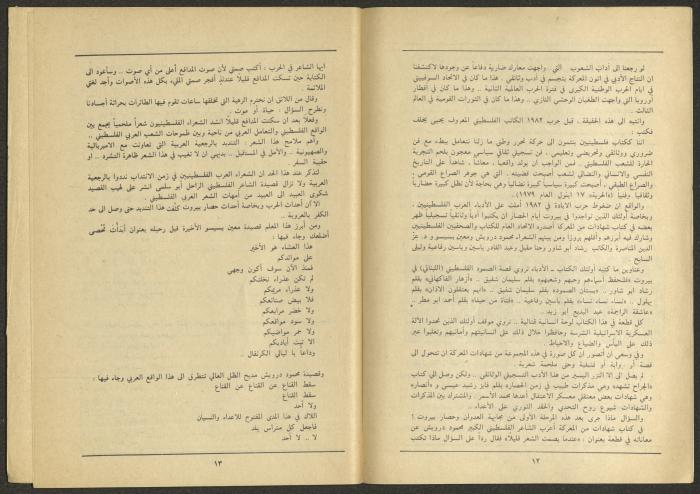 لو رجعنا الى آداب الشعوب التي واجهت معارك ضارية دفاعا عن وجودها لاكتشفنا
ان النتاج الأدبي في اتون المعركة يتجسم في أدب وثائقي . هذا ما كان في الاتحاد السوفييتي
في ايام الحرب الوطنية الكبرى في فترة الحرب العالمية الثانية .. وهذا ما كان في أقطار
أوروبا التي واجهت الطغيان الوحشي النازي .. وهذا ما كان في الثورات القومية في العالم
الثالث ..
وانتبه الى هذه الحقيقة ، قبل حرب ١٩٨٢ الكاتب الفلسطيني المعروف يحيى يخلف
فكتب :
اننا ككتاب فلسطينيين ينتمون الى حركة تحرر وطني ما زلنا نتعامل ببطء مع فن
ضروري ووثائقي وتحريضي وتعليمي . فن تسجيلي ثقافي سياسي معجون بلحم التجربة
الحارة للشعب الفلسطيني . فمن الواجب ان يولد واقعيا ، معاشا ، شاهدا على التاريخ
النفسي والانساني والنضالي لشعب أصبحت قضيته .. التي هي جوهر الصراع القومي
والصراع الطبقي ، أصبحت كبيرة سياسيا كبيرة نضاليا وهي بحاجة لأن تظل كبيرة حضاريا
وثقافيا وفنيا («الحرية» ١٧ ايلول العام ١٩٧٩) .
والواقع ان ضغوط حرب الابادة في ١٩٨٢ أملت على الأدباء العرب الفلسطينيين ،
وبخاصة أولئك الذين تواجدوا في بيروت ايام الحصار ان يكتبوا أدبا وثائقيا تسجيليا ظهر
بعضه في كتاب شهادات من المعركة أصدره الاتحاد العام للكتاب والصحفيين الفلسطينيين
وشارك فيه أبرزهم وأقلهم بروزا ومن بينهم الشعراء محمود درويش ومعين بسيسو و د. عز
الدين المناصرة والكاتب رشاد أبو شاور وحنا مقبل وعبد القادر ياسين وياسين رفاعية وليلى
السايح .
وعناوين ما كتبه أولئك الكتاب ـ الأدباء تروي قصة الصمود الفلسطيني (اللبناني) في
بيروت «فلنحفظ أسماءهم وحبهم وشعبهم» بقلم سليمان شفيق .. «أزهار الفاكهاني» بقلم
رشاد أبو شاور .. «بستان الصمود» بقلم سليمان شفيق .. «انهم يعتقلون الاذان» بقلم
يهلول .. «نساء نساء نساء» بقلم ياسين رفاعية .. «فتاة من حيفا» بقلم أحمد أبو مطر
«عاشقة الراجمة» عبد البديع أبو زيد..
كل قطعة في هذا الكتاب لوحة انسانية قتالية .. تروي موقف أولئك الذين تحدوا الآلة
العسكرية الاسرائيلية الشرسة وحافظوا خلال ذلك على انسانيتهم وأمانيهم وتغلبوا عبر
ذلك على اليأس والضياع والاحباط .
وفي وسعي ان أتصور أن كل صورة في هذه المجموعة من شهادات المعركة ان تتحول الى
قصة أو رواية أو تمثيلية وحتى ملحمة شعرية .
لم يصل الى الا النزر اليسير من هذا الأدب التسجيلي الوثائقي .. ولكن وصل الي كتاب
«الجراح تشهد» وهي مذكرات طبيب في زمن الحصار» بقلم فايز رشيد عيسى و «أنصار»
وهي شهادات بعض معتقلي معسكر الاعتقال أعدها محمد الأسمر . والمشترك بين المذكرات
والشهادات شيوع روح التحدي والحقد الثوري على الأعداء ..
والسؤال ماذا جرى بعد هذه المرحلة الأولى من مجابهة العدوان وحصار بيروت ؟
في كتاب شهادات من المعركة أعرب الشاعر الفلسطيني الكبير محمود درويش عن
معاناته في قطعة بعنوان : «عندما يصمت الشعر قليلا» فقال ردا على السؤال ماذا تكتب
١٢
أيها الشاعر في الحرب : أكتب صمتي لأن صوت المدافع أعلى من أي صوت .. وسأعود الى
الكتابة حين تسكت المدافع قليلا عندئذ أفجر صمتي المليء بكل هذه الأصوات وأجد لغتي
الملائمة .
وقال من اللائق ان نحترم الرهبة التي تخلقها ساعات تقوم فيها الطائرات بحراثة أجسادنا
وتطرح السؤال : حياة أو موت .
وفعلا بعد ان سكتت المدافع قليلا انشد الشعراء الفلسطينيون شعرا ملحميا يجمع بين
الواقع الفلسطيني والتعامل العربي من ناحية وبين طموحات الشعب العربي الفلسطيني ..
وأهم ملامح هذا الشعر : التنديد بالرجعية العربية التي تعاونت مع الامبريالية
والصهيونية .. والأمل في المستقبل .. بديهي ان لا تغيب في هذا الشعر ظاهرة التشرد .. أو
حقيبة السفر .
لنذكر عند هذا الحد ان الشعراء العرب الفلسطينيين في زمن الانتداب نددوا بالرجعية
العربية ولا تزال قصيدة الشاعر الفلسطيني الراحل أبو سلمى انشر على لهيب القصيد
شكوى العبيد الى العبيد من أمهات الشعر العربي الفلسطيني .
الا ان أحداث الحرب وبخاصة أحداث حصار بيروت كثفت هذا التنديد حتى وصل الى حد
الكفر بالعروبة ..
ومن أبرز هذا المعلم قصيدة معين بسيسو الأخيرة قبل رحيله بعنوان أبدأت تحصى
أضلعك وجاء فيها :
هذا العشاء هو الأخير
على موائدكم
فمنذ الآن سوف أكون وجهي
لم تكن عذراء نخلتكم
ولا عذراء مريمكم
فلا بيض صنائعكم
ولا خضر مرابعكم
ولا سود مواقعكم
ولا حمر مواضيكم
الا تبت أياديكم
وداعا يا ليالي الكرنفال ..
وقصيدة محمود درويش مديح الظل العالي تنتظري الى هذا الواقع العربي وجاء فيها :
سقط القناع عن القناع عن القناع
سقط القناع
ولا أحد
الاك في هذا المدى المفتوح للأعداء والنسيان
فاجعل كل متراس بلد
لا .. لا أحد
١٣